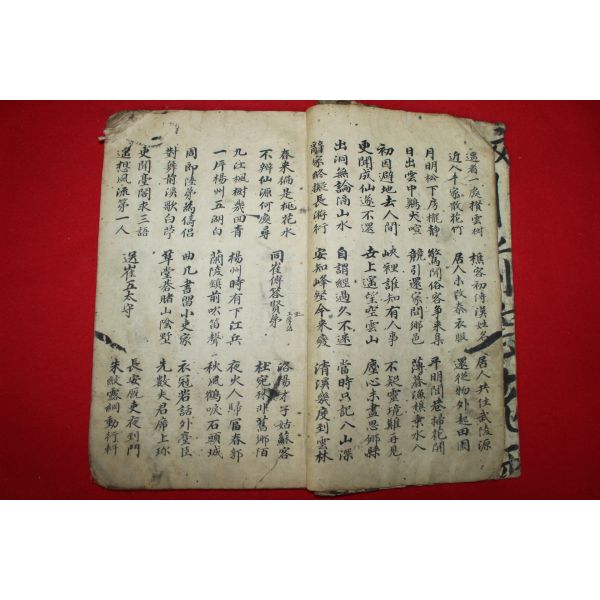 遙看一處攢雲樹 樵客初傳漢姓名 居人共住武陵源
近入千家散花竹 居人未改秦衣服 還從物外起田園
月明松下房櫳靜 驚聞俗客爭來集 平明閭巷掃花開
日出雲中鷄犬喧 競引還家問鄉邑 薄暮漁樵乘水入
初因避地去人間 峽裡誰知有人事 不疑靈境難再見
更聞成仙遂不還 世上遙望空雲山 塵心未盡思鄉縣
出洞無論隔山水 自謂經過久不迷 當時只記入山深
辭家終擬長游衍 安知峰壑今來變 清溪幾度到雲林
春來徧是桃花水 同崔傅答賢弟 洛陽才子姑蘇客
不辨仙源何處尋 桂宛殊非舊鄉陌
九江楓樹幾回青 楊州時有下江兵 夜火人歸富春郭
一坪楊州五湖白 蘭陵鎮前吹笛聲 秋風鶴唳石頭城
周郎陸弟為儔侶 曲几書留小史家 衣冠若話外臺臣
對舞前溪歌白苧 草堂棊賭山陰墅 先數夫君席上珍
更聞臺閣求三語 送崔五太守 長安廐吏夜到門
遙想風流第一人 朱紋露網動行軒